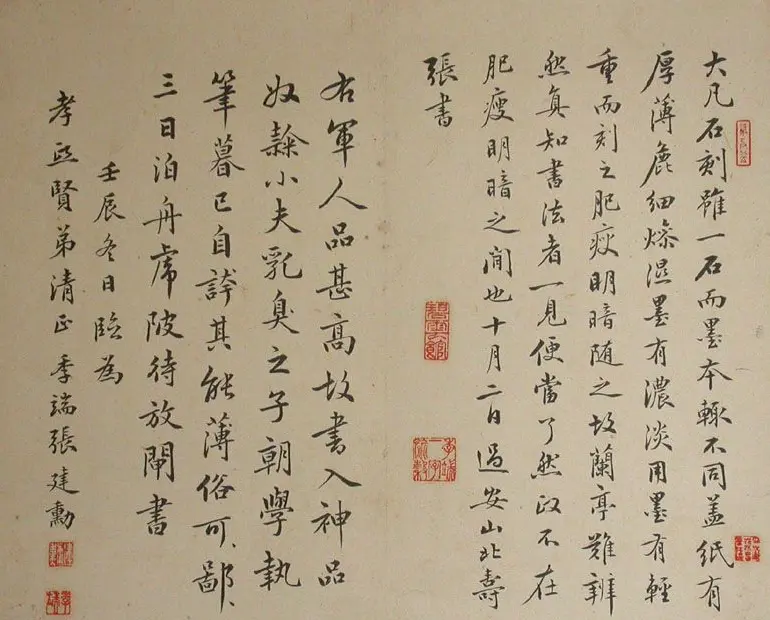 大凡石刻雖一石而墨本輒不同盖紙有
厚薄麄細燥濕墨有濃淡用墨有輕
重而刻之肥瘦明暗随之故蘭亭難辨
然真知書法者一見便當了然政不在
肥瘦明暗之閒也十月二日過安山北壽
張書
右軍人品甚高故書入神品
奴隸小夫乳臭之子朝學執
筆暮已自誇其能薄俗可鄙
三日泊舟虎陂待放閘書
壬辰冬日臨為
孝 賢弟清正季端張建勳